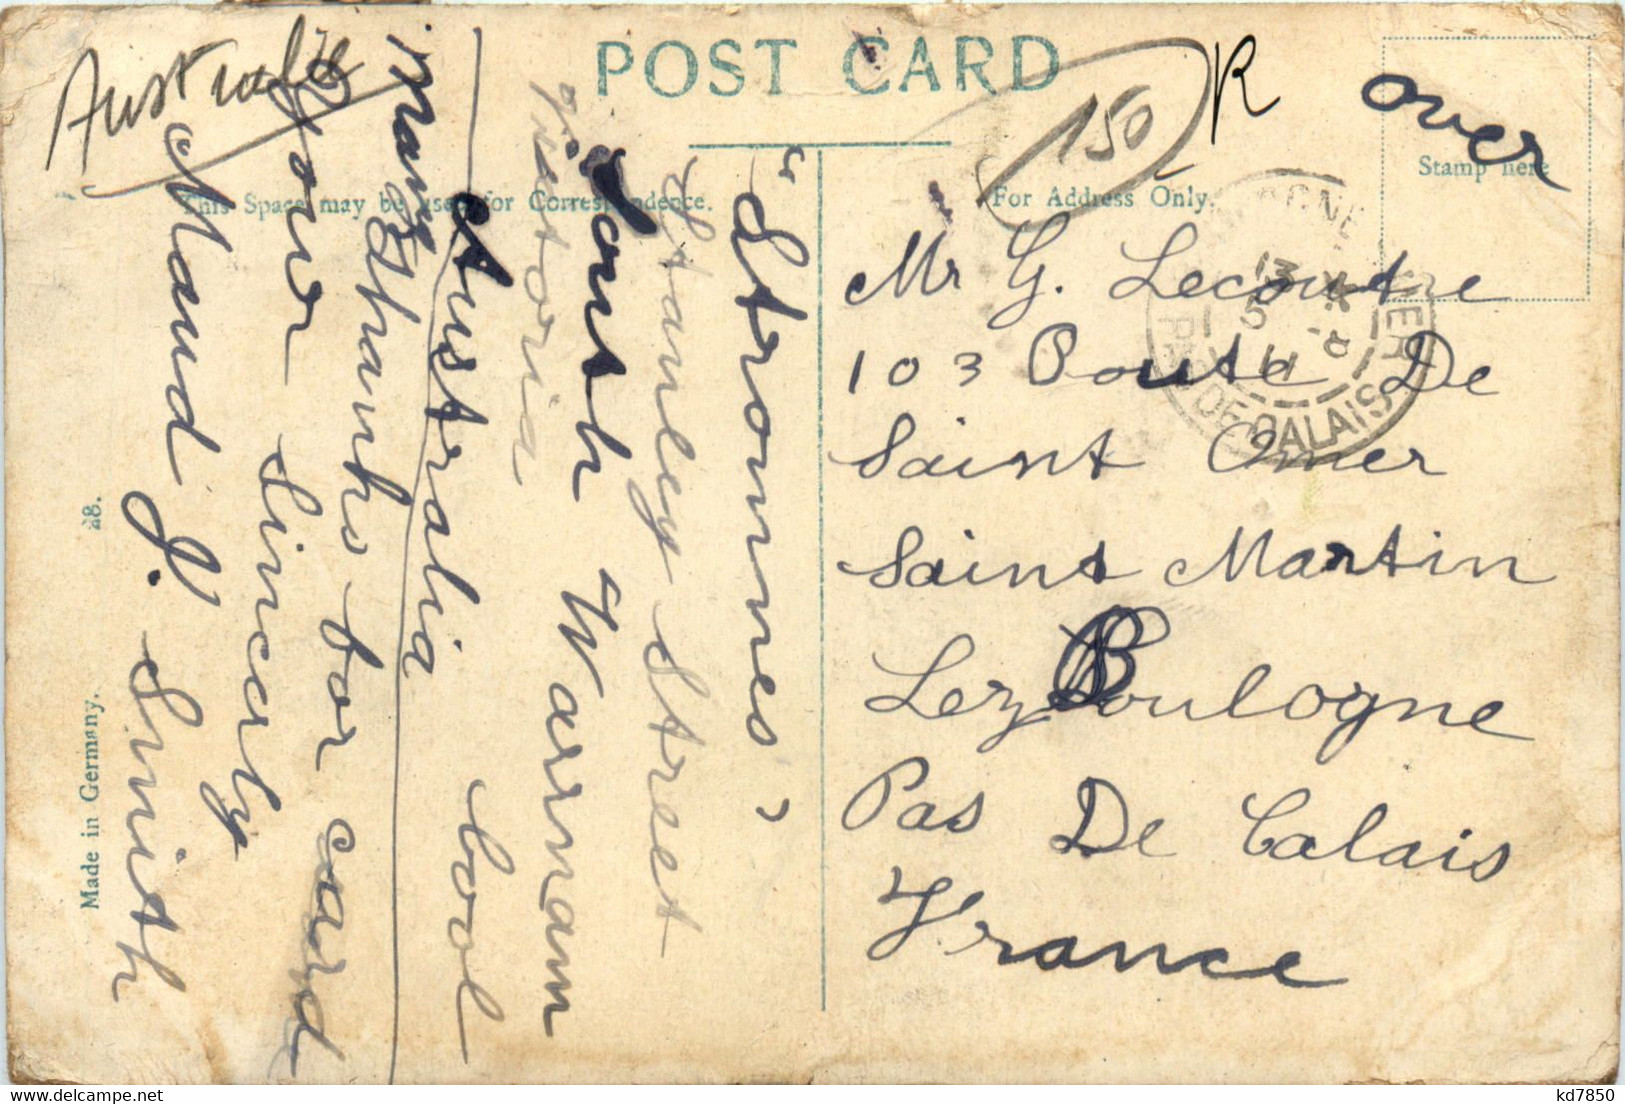 POST CARD
Australia
150
R
over
Stamp here
This Space may be used for Correspondence.
For Address Only.
"Stronnes"
Stanley Street
South Warrnam
bool
Victoria
Australia
Many Thanks for card
Your Sincerly
Maud J. Smith
Mr G. Lecoutre
103 Route De
Saint Omer
Saint Martin
Lez Boulogne
Pas De Calais
France
PAS DE CALAIS
28.
Made in Germany.
kd7850